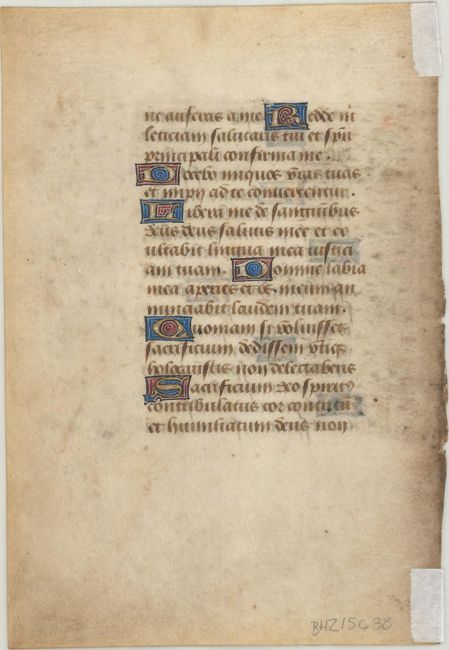 ne auferas a me. Redde m
leticiam salutaris tui et spu
principali confirma me.
Docebo iniquos vias tuas
et impij ad te convertentur.
Libera me de sanguinibus
deus deus salutis mee et ex
ultabit lingua mea iustici
am tuam. Domine labia
mea aperies et os meum an
nunciabit laudem tuam.
Quoniam si voluisses
sacrificium dedissem vtiq
holocaustis non delectaberis
Sacrificium deo spiritus
contribulatus cor contritu
et humiliatum deus non
BHZ15G38